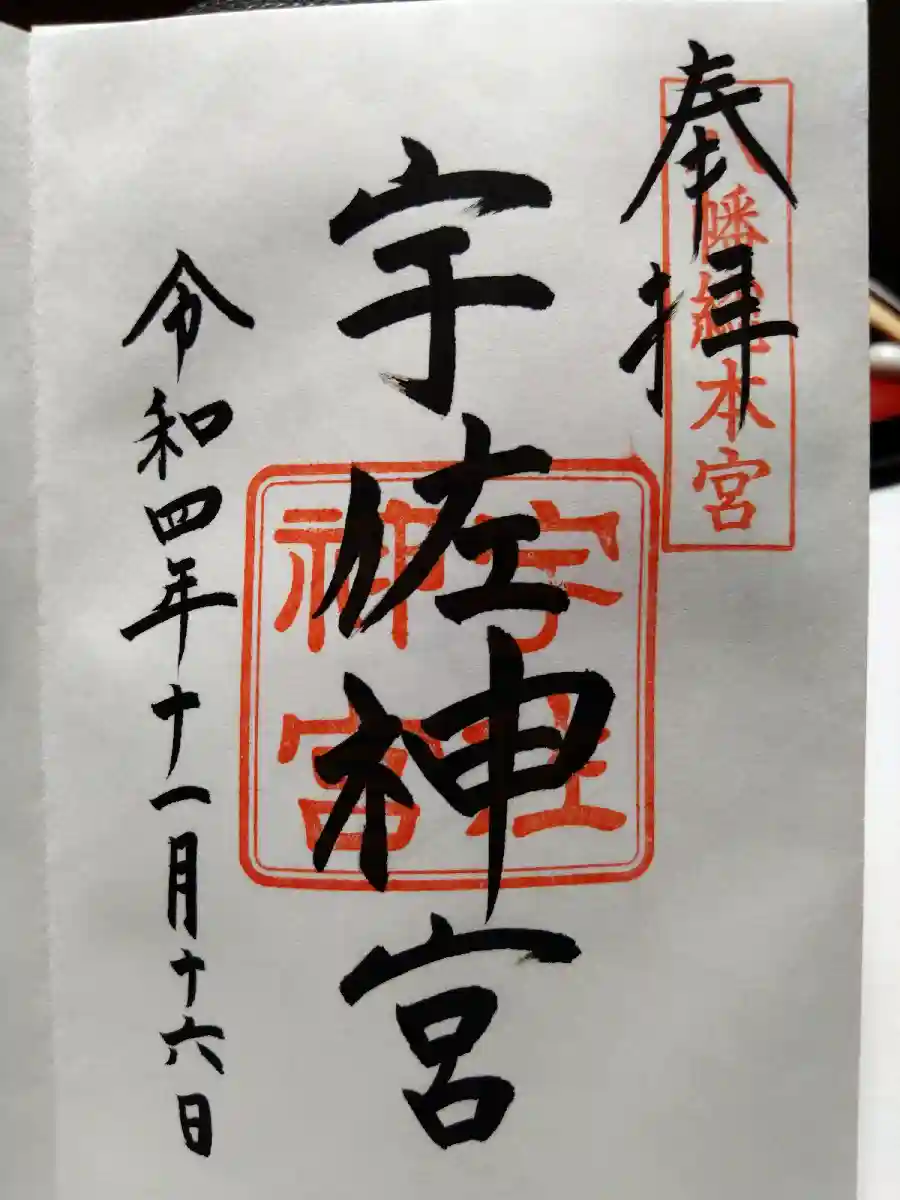 奉拝
八幡総本宮
宇佐神宮
宇佐
神宮
令和四年十一月十六日